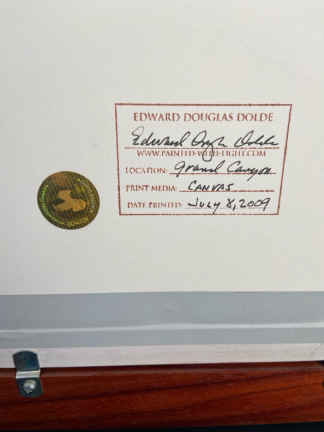 EDWARD DOUGLAS DOLDE
Edward Douglas Dolde
WWW.PAINTED-WITH-LIGHT.COM
LOCATION: Grand Canyon
PRINT MEDIA: CANVAS
DATE PRINTED: JULY 8, 2009